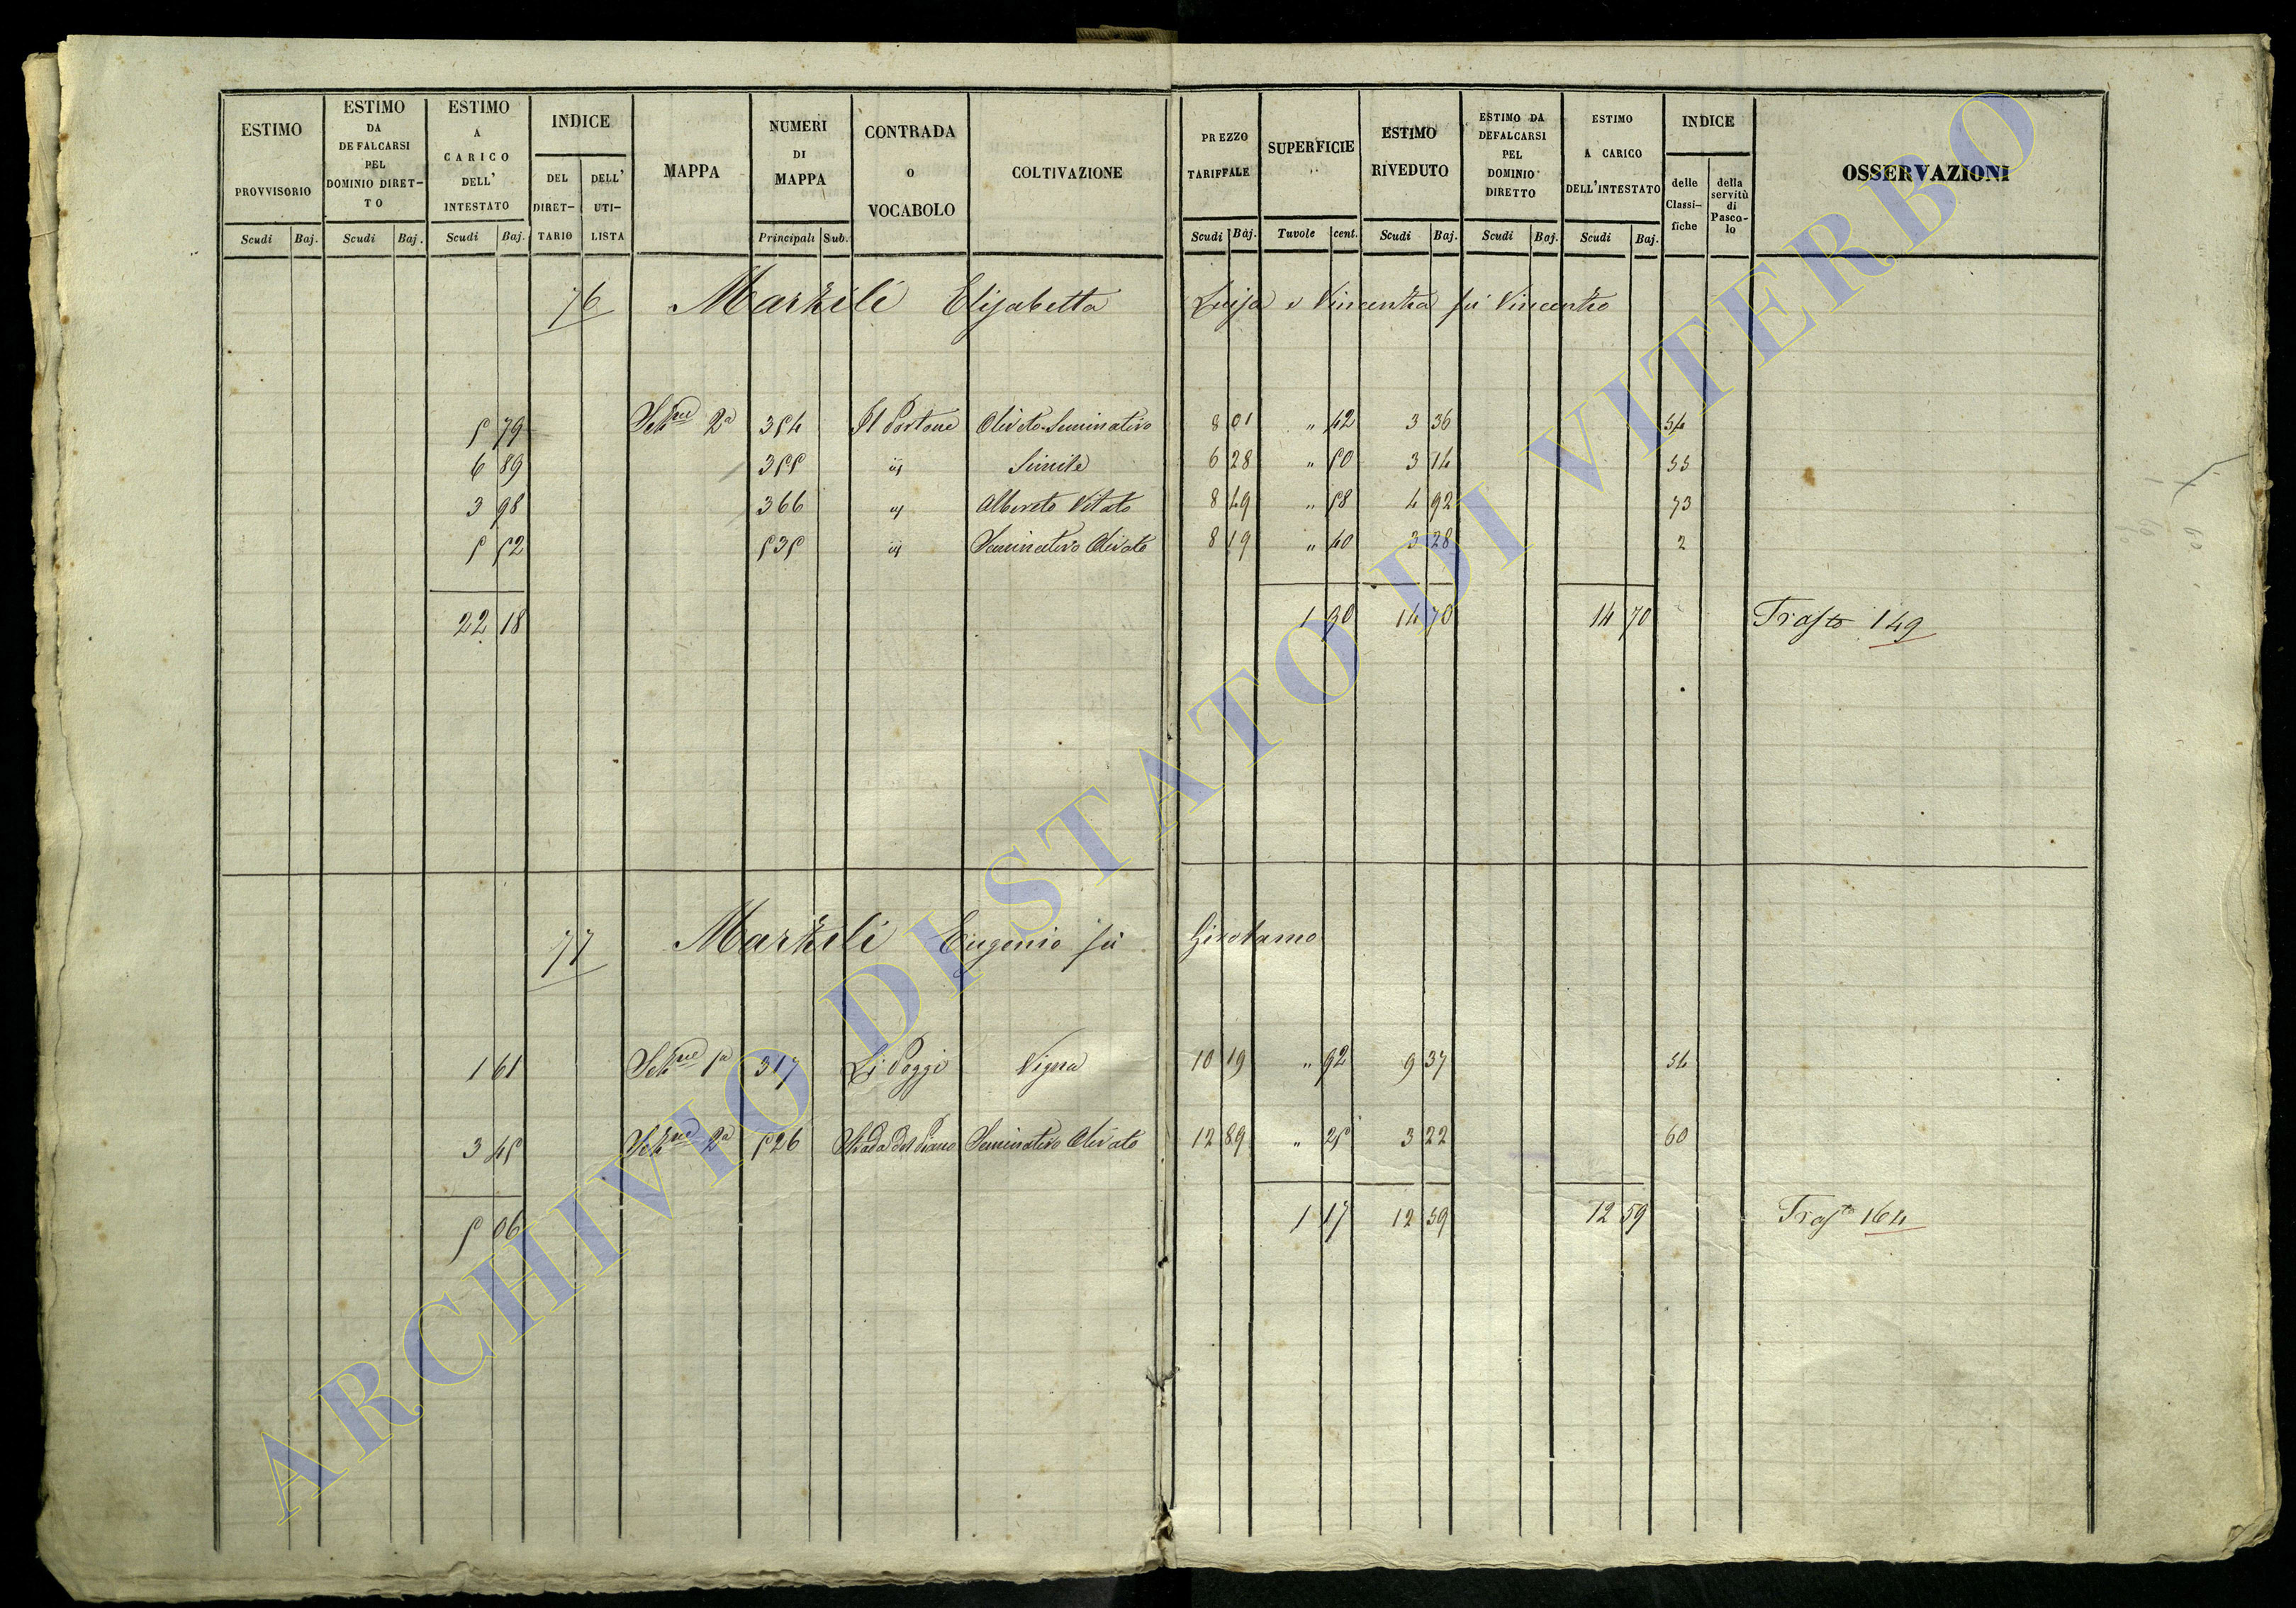 ESTIMO PROVVISORIO Scudi Baj.
ESTIMO DA DEFALCARSI PEL DOMINIO DIRET-TO Scudi Baj.
ESTIMO A CARICO DELL' INTESTATO Scudi Baj.
INDICE DEL DIRET-TARIO DELL' UTI-LISTA
MAPPA
NUMERI DI MAPPA Principali Sub.
CONTRADA O VOCABOLO
COLTIVAZIONE
PREZZO TARIFFALE Scudi Baj.
SUPERFICIE Tavole cent.
ESTIMO RIVEDUTO Scudi Baj.
ESTIMO DA DEFALCARSI PEL DOMINIO DIRETTO Scudi Baj.
ESTIMO A CARICO DELL'INTESTATO Scudi Baj.
INDICE delle Classi-fiche della servitù di Pasco-lo
OSSERVAZIONI
76 Marzili Elisabetta Luisa e Vincenza fù Vincenzo
5 79 Sehne 2a 354 Il Portone Oliveto Seminativo 8 01 " 42 3 36 54
6 89 355 id Simile 6 28 " 50 3 14 55
3 98 366 id Albereto Vitato 8 49 " 58 4 92 73
5 52 535 id Seminativo Olivato 8 19 " 40 3 28 2
22 18 1 90 14 70 14 70 Trasto 149
77 Marzili Eugenio fù Girolamo
1 61 Sehne 1a 317 Li Poggi Vigna 10 19 " 92 9 37 54
3 45 Sehne 2a 526 Strada del Piano Seminativo Olivato 12 89 " 25 3 22 60
5 06 1 17 12 59 12 59 Trasto 164
ARCHIVIO DI STATO DI VITERBO